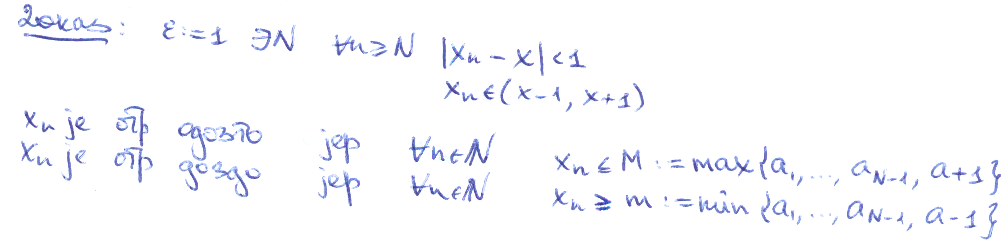 Доказ: ε:=1 ∃N ∀n≥N |xₙ - x|<1
xₙ∈(x-1, x+1)
xₙ је огр одозго јер ∀n∈N xₙ ≤ M := max{a₁,..., a_{N-1}, a+1}
xₙ је огр доздо јер ∀n∈N xₙ ≥ m := min{a₁,..., a_{N-1}, a-1}